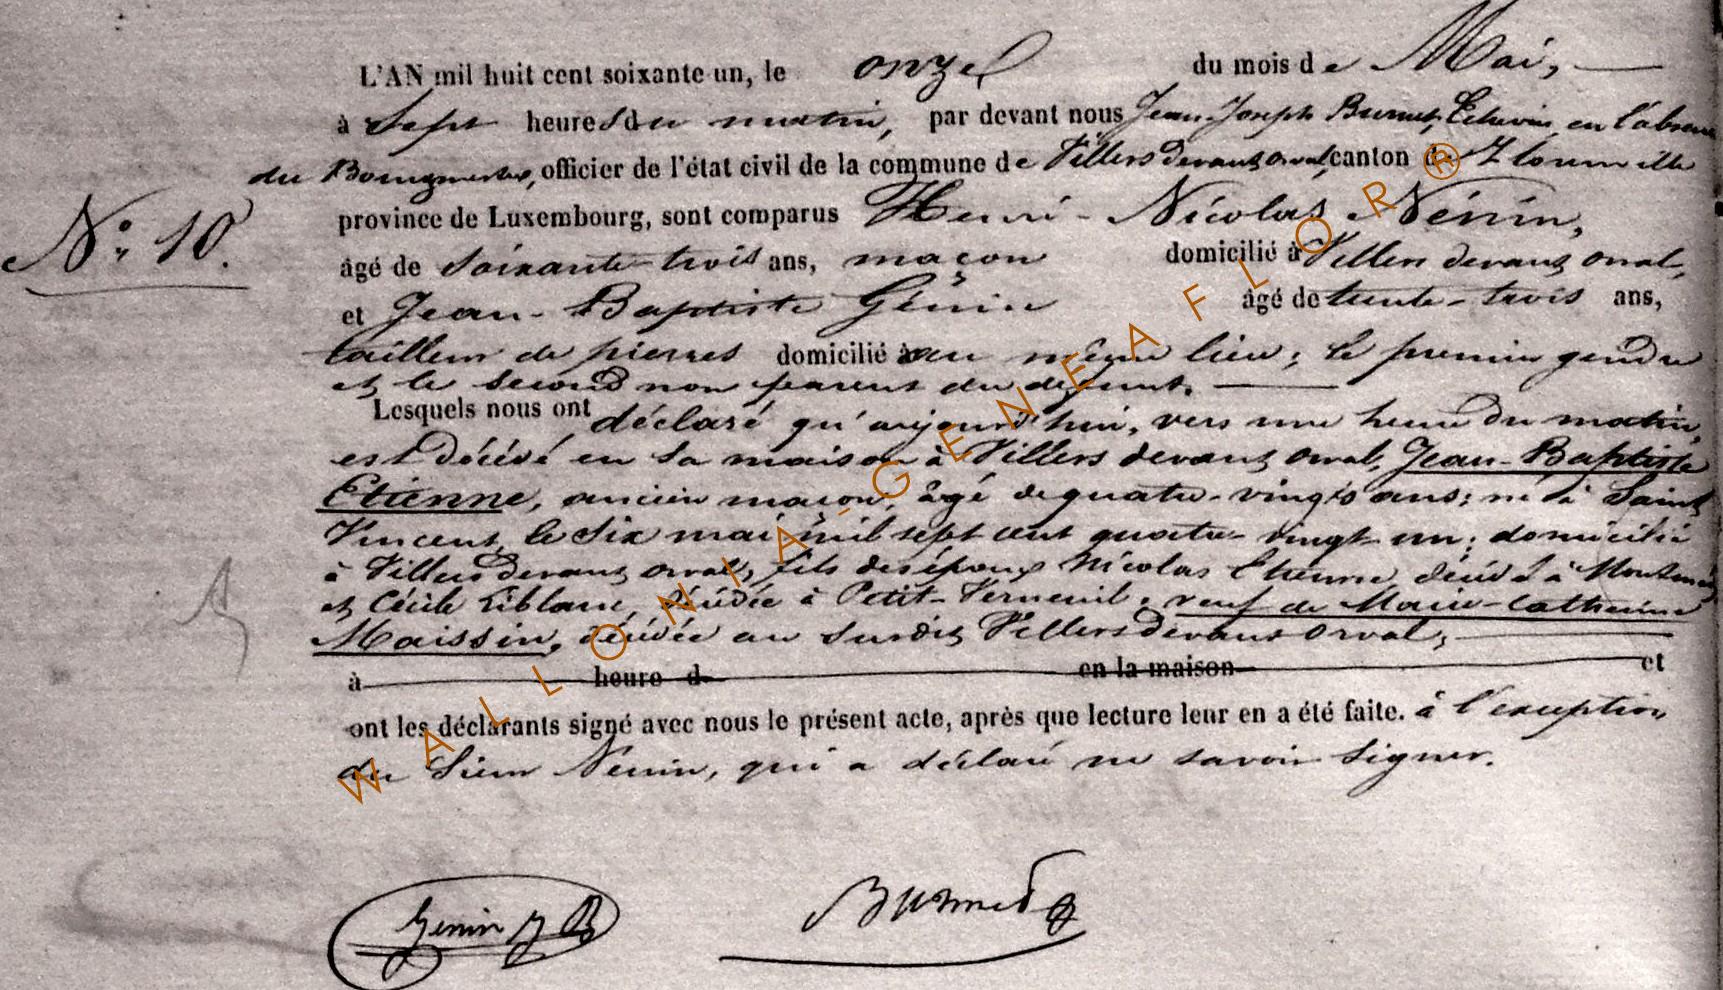 L'AN mil huit cent soixante un, le onze du mois de Mai,
à Sept heures du matin, par devant nous Jean-Joseph Echevin, en l'absence
du Bourgmestre, officier de l'état civil de la commune de Villers devant orval, canton de
province de Luxembourg, sont comparus Henri-Nicolas Nénin,
N° 10.
âgé de soixante-trois ans, maçon domicilié à Villers devant orval,
et Jean-Baptiste Génin âgé de trente-trois ans,
tailleur de pierres domicilié au même lieu; le premier gendre
et le second non parent du defunt.
Lesquels nous ont déclaré qu'aujourd'hui, vers une heure du matin,
est décédé en sa maison à Villers devant orval, Jean-Baptiste
Etienne, ancien maçon, âgé de quatre-vingts ans; né à Saint
Vincent, le six mai mil sept cent quatre-vingt-un; domicilié
à Villers devant orval, fils des époux Nicolas Etienne, décédé à
et Cécile Liblanc, décédée à Petit-Verneuil; veuf de Marie-Catherine
Maissin, décédée au susdit Villers devant orval;
à heure d en la maison et
ont les déclarants signé avec nous le présent acte, après que lecture leur en a été faite. à l'exception
du Sieur Nenin, qui a déclaré ne savoir signer.
Genin J B
WALLONIA-GENEAFLOR®